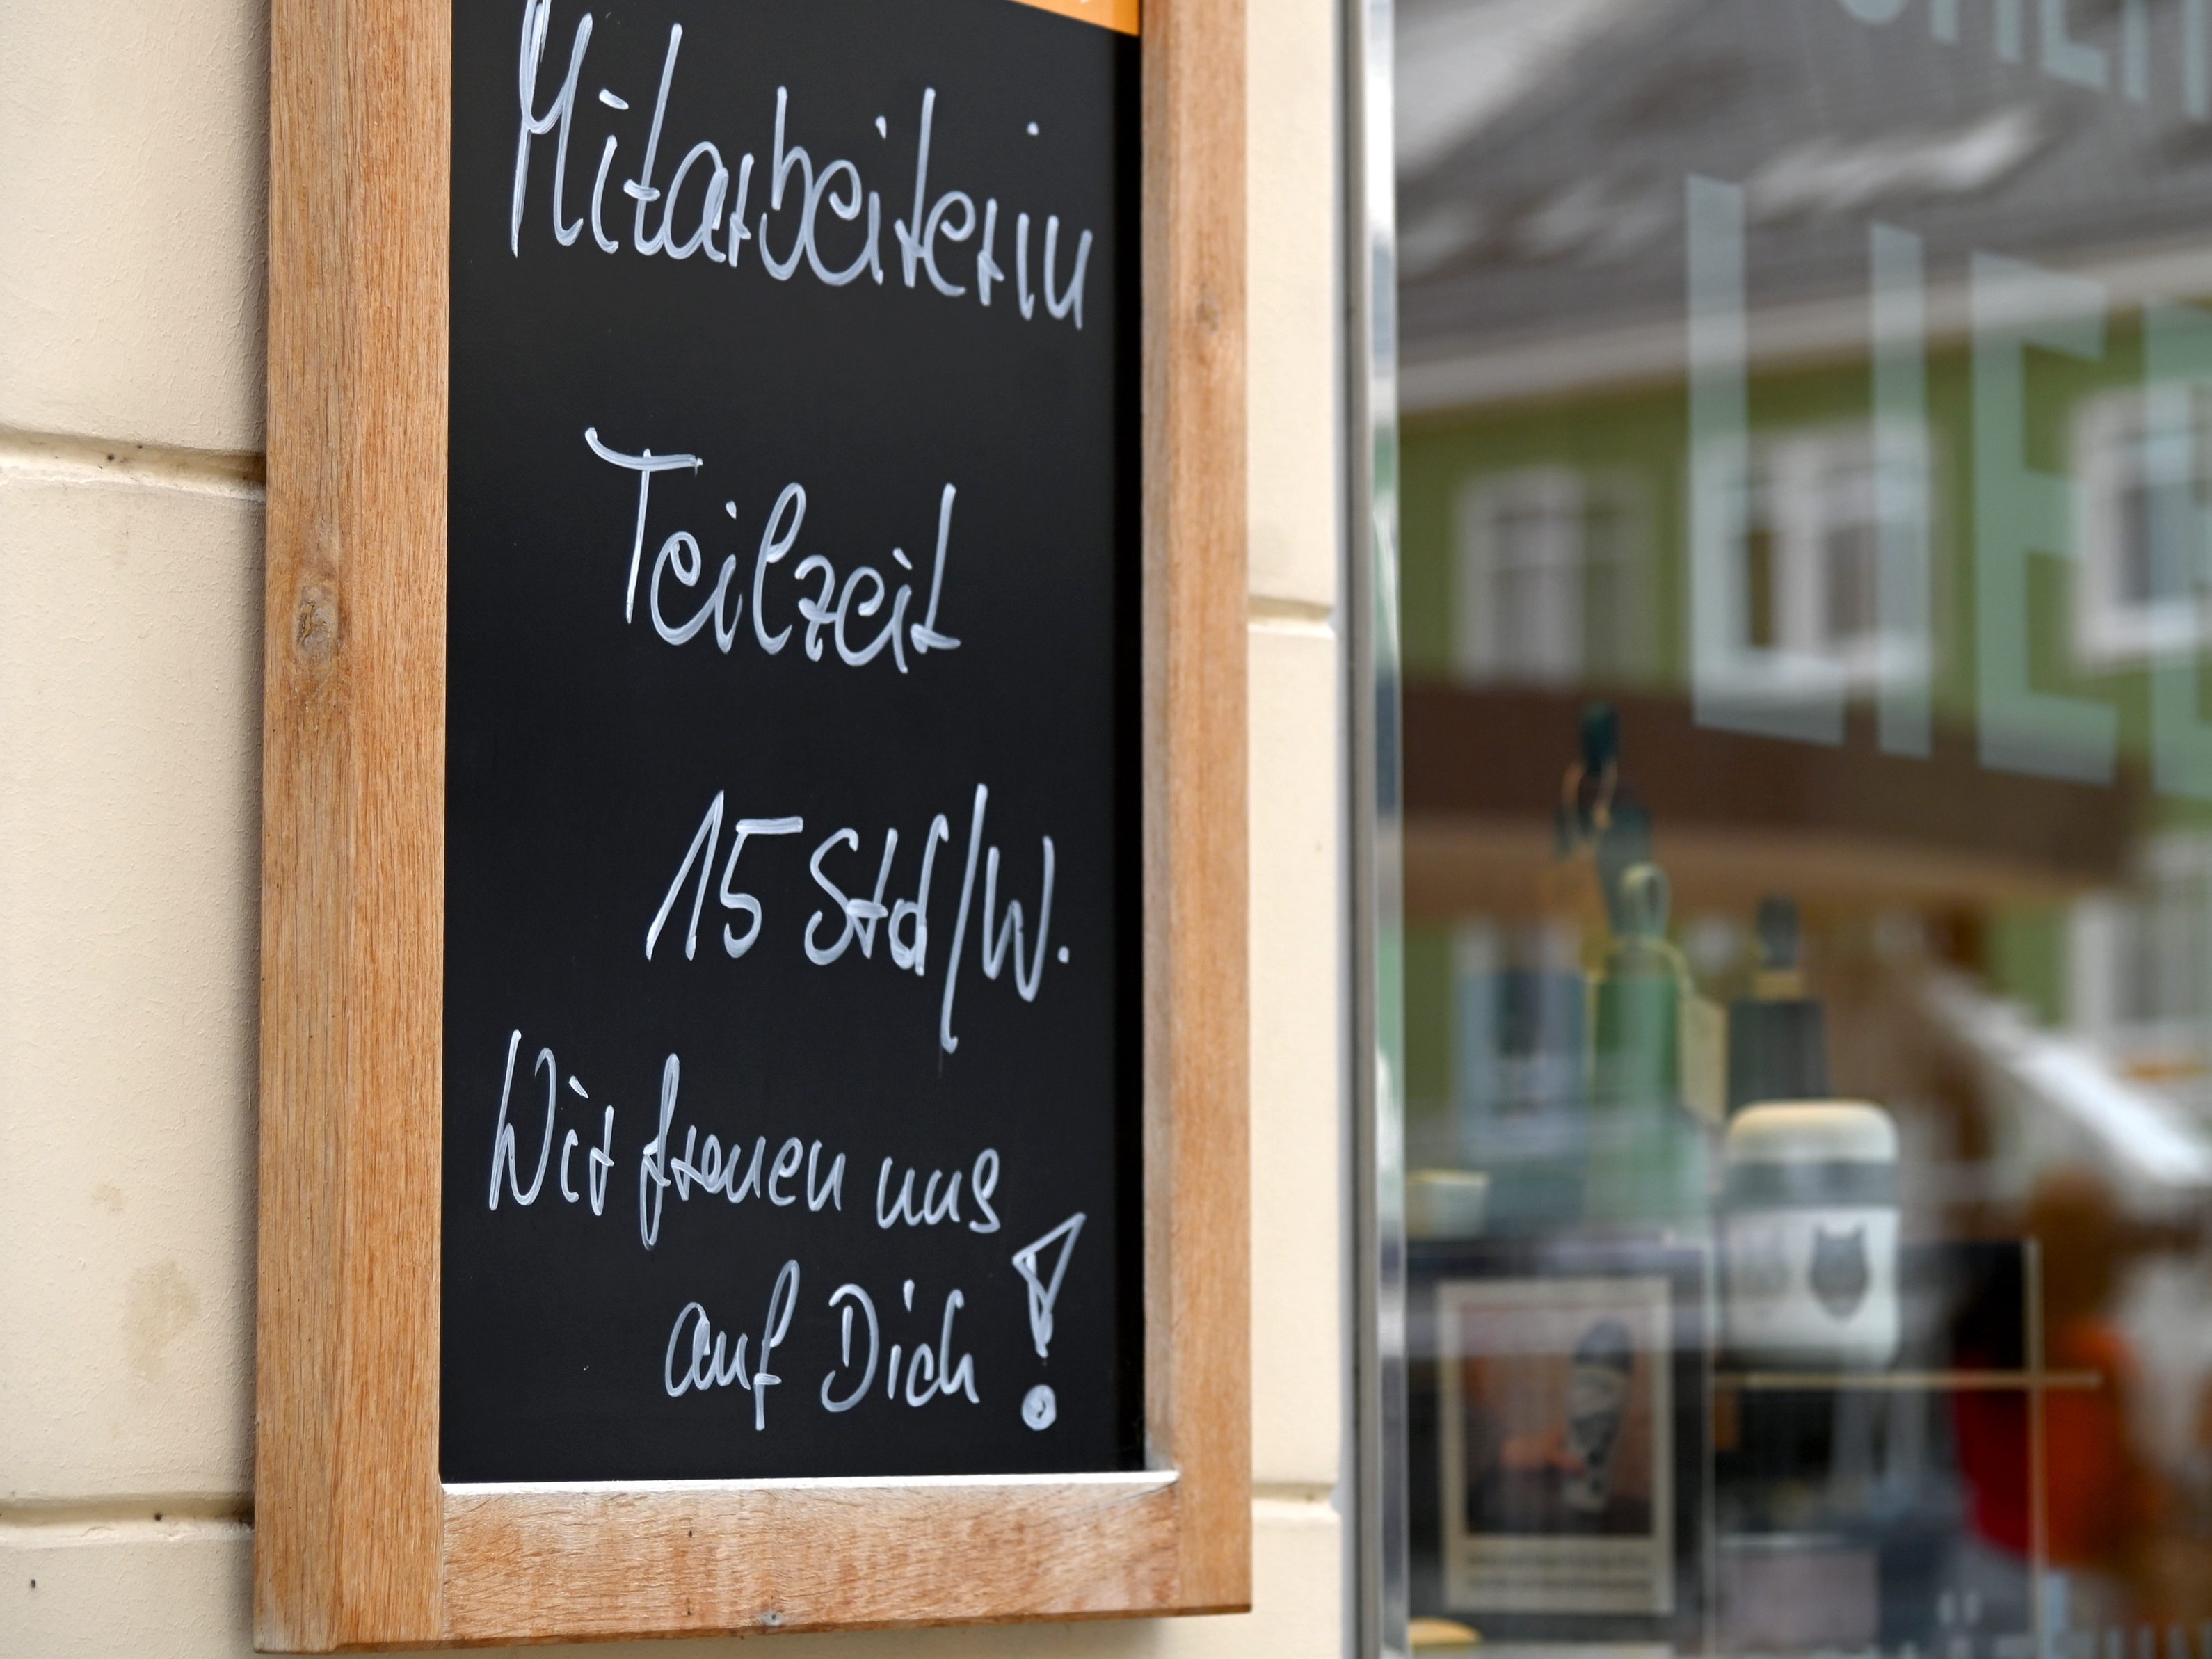 Mitarbeiterin
Teilzeit
15 Std/W.
Wir freuen uns
auf Dich!
LIE